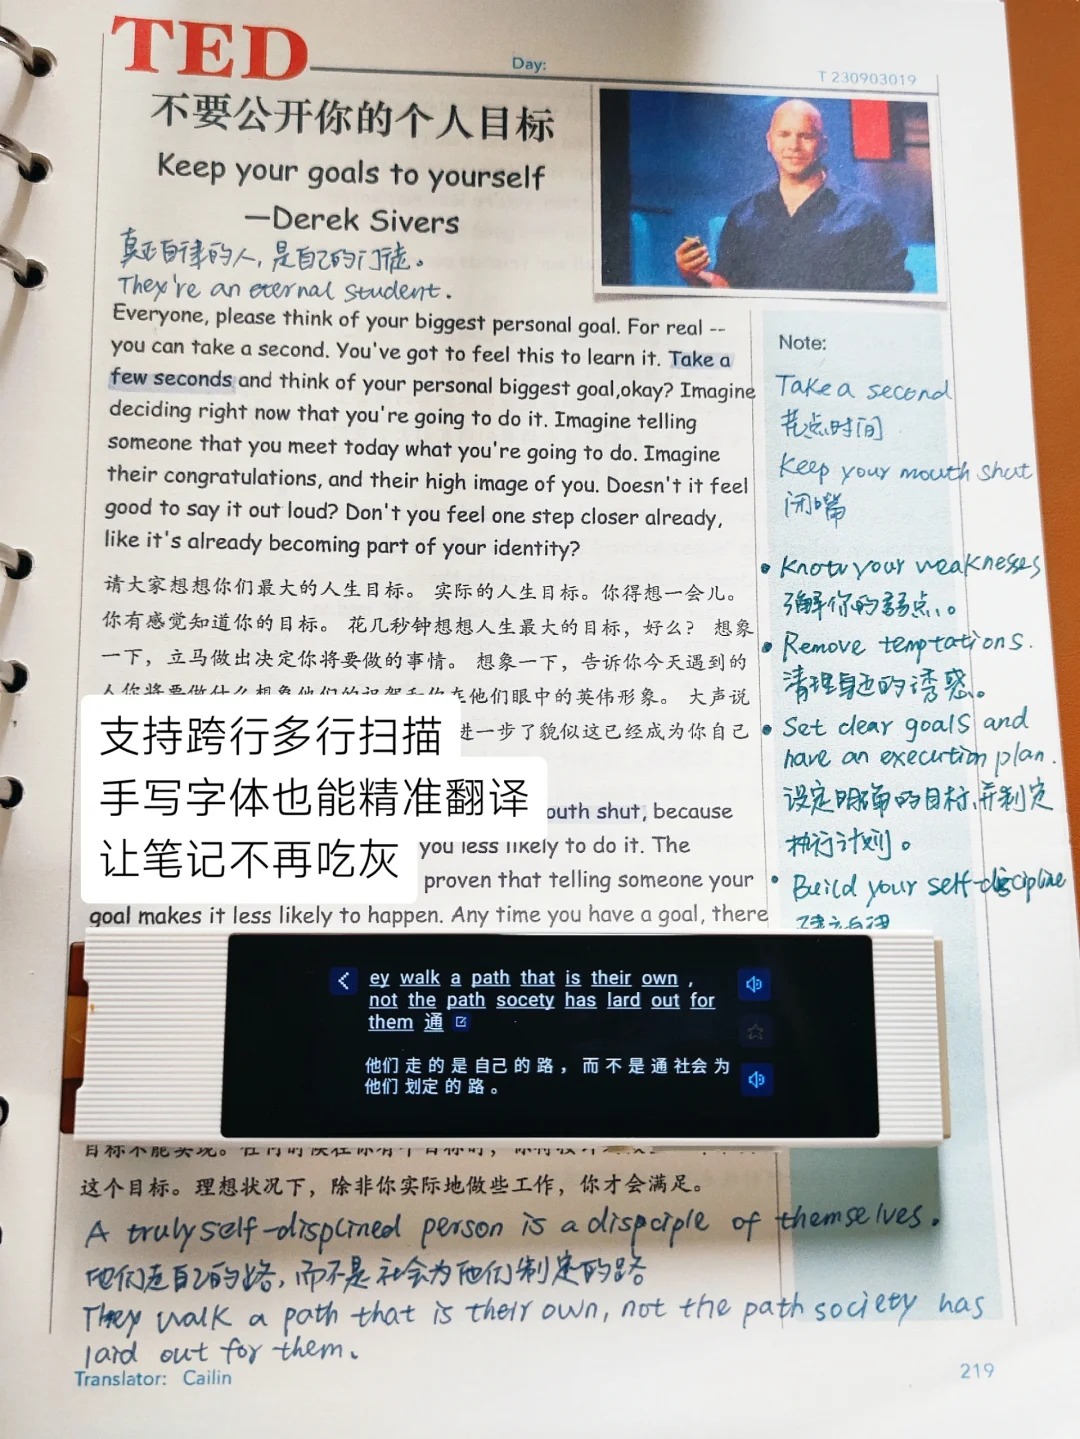 TED
Day:
T 230903019
不要公开你的个人目标
Keep your goals to yourself
—Derek Sivers
真正自律的人，是自己的门徒。
They're an eternal student.
Everyone, please think of your biggest personal goal. For real --
you can take a second. You've got to feel this to learn it. Take a
few seconds and think of your personal biggest goal,okay? Imagine
deciding right now that you're going to do it. Imagine telling
someone that you meet today what you're going to do. Imagine
their congratulations, and their high image of you. Doesn't it feel
good to say it out loud? Don't you feel one step closer already,
like it's already becoming part of your identity?
请大家想想你们最大的人生目标。 实际的人生目标。你得想一会儿。
你有感觉知道你的目标。 花几秒钟想想人生最大的目标，好么？ 想象
一下，立马做出决定你将要做的事情。 想象一下，告诉你今天遇到的
在他们眼中的英伟形象。 大声说
进一步了貌似这已经成为你自己
支持跨行多行扫描
手写字体也能精准翻译
让笔记不再吃灰
outh shut, because
you less likely to do it. The
proven that telling someone your
goal makes it less likely to happen. Any time you have a goal, there
Note:
Take a second
花点时间
Keep your mouth shut
闭嘴
• Know your weaknesses
了解你的弱点。
• Remove temptations.
清理身边的诱惑。
• Set clear goals and
have an execution plan.
设定明确的目标，并制定
执行计划。
• Build your self-discipline
建立自律
ey walk a path that is their own ,
not the path socety has lard out for
them 通
他们走的是自己的路，而不是通社会为
他们划定的路。
这个目标。理想状况下，除非你实际地做些工作，你才会满足。
A truly self-displined person is a dispciple of themselves.
他们走自己的路，而不是社会为他们制定的路
They walk a path that is their own, not the path society has
laid out for them.
Translator: Cailin
219